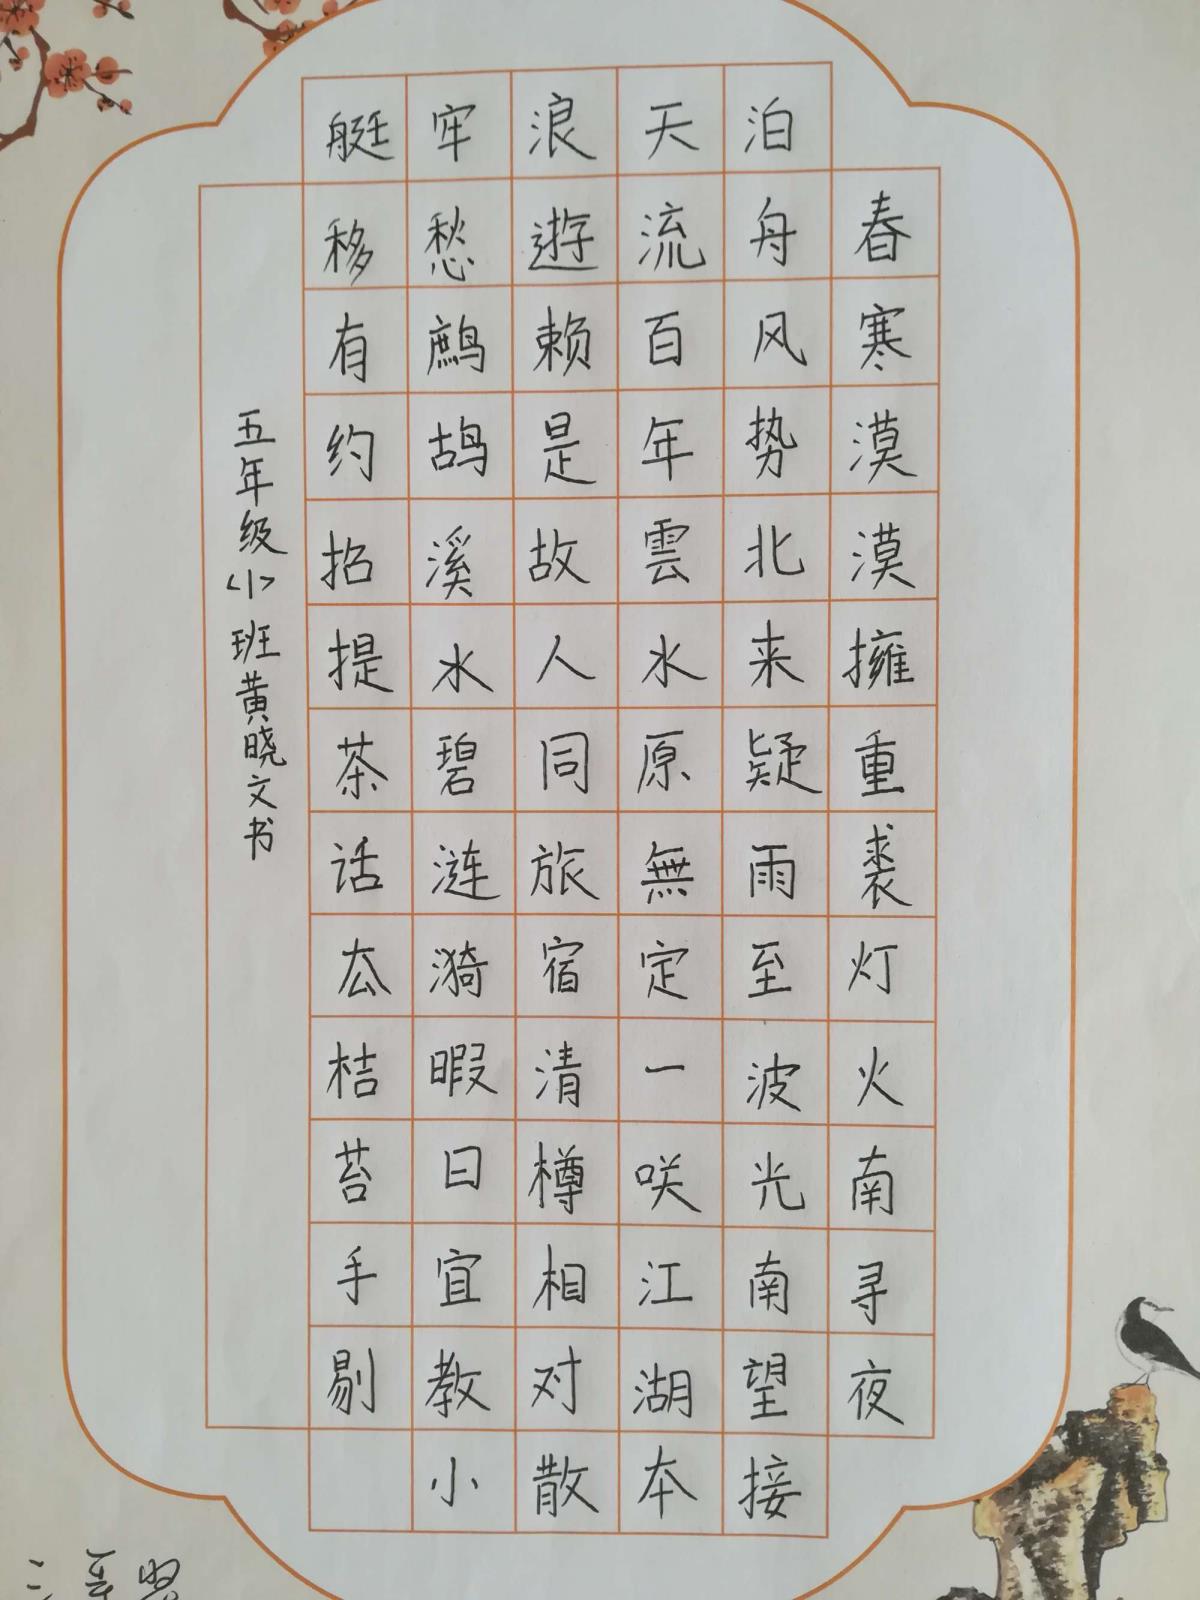 春寒漠漠擁重裘灯火南寻夜
泊舟风势北来疑雨至波光南望接
天流百年雲水原無定一咲江湖本
浪遊赖是故人同旅宿清樽相对散
牢愁鹧鸪溪水碧涟漪暇日宜教小
艇移有约招提茶话厺桔苔手剔
五年级<小>班黄晓文书
三等奖